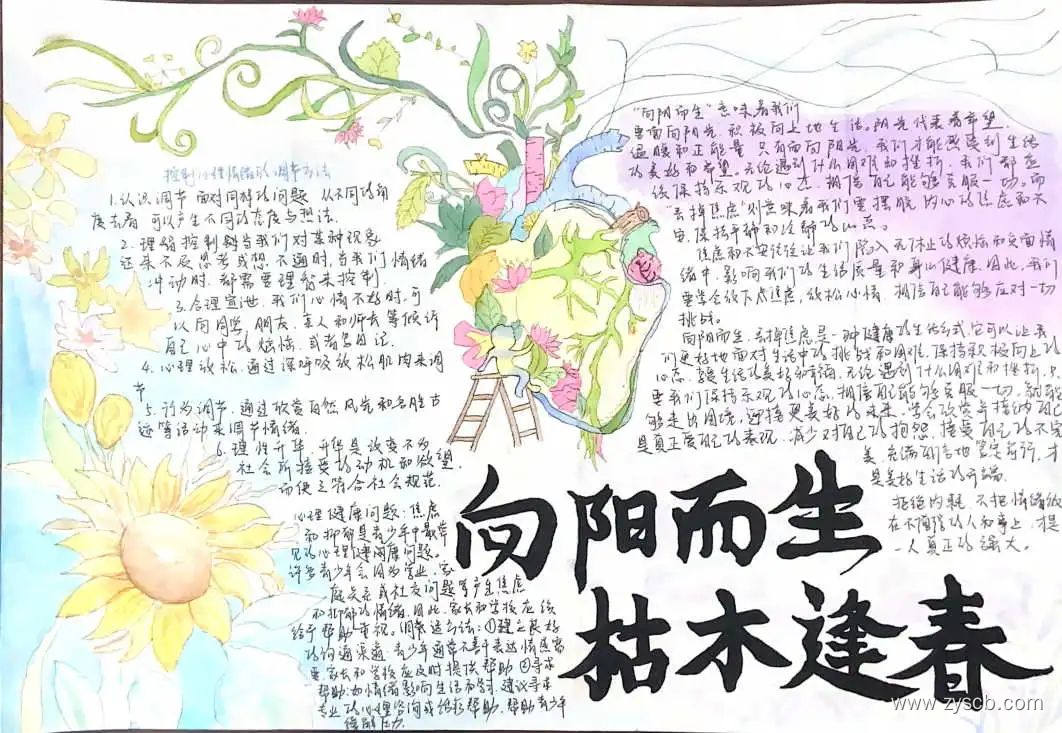 控制心理情绪的调节方法
1.认识调节 面对同样的问题 从不同的角
度去看 可以产生不同的态度与想法.
2.理智控制 当我们对某种现象
还来不及思考或想不通时,当我们情绪
冲动时.都需要理智来控制
3.合理宣泄.我们心情不好时,可
以向同学,朋友.亲人和师长等倾诉
自己心中的烦恼.或者写日记.
4.心理放松.通过深呼吸放松肌肉来调
节
5.行为调节.通过欣赏自然风光和名胜古
迹等活动来调节情绪.
6.理性升华.升华是改变不为
社会所接受的动机和欲望.
而使之符合社会规范.
心理健康问题:焦虑
和抑郁是青少年中最常
见的心理健康问题。
许多青少年会因为学业、家
庭关系或社交问题等产生焦虑
和抑郁的情绪.因此.家长和学校应该
给予帮助重视.调整适方法:①建立良好
的沟通渠道.青少年通常不善于表达情感需
要.家长和学校应及时提供帮助②寻求
帮助:如情绪影响生活和学习.建议寻求
专业的心理咨询或组织帮助.帮助青少年
缓解压力.
"向阳而生"意味着我们
要面向阳光,积极向上地生活。阳光代表着希望
温暖和正能量 只有面向阳光,我们才能感受到生活
的美好和希望。无论遇到什么困难和挑折,我们都应
该保持乐观的心态.相信自己能够克服一切。而
"丢掉焦虑"则意味着我们要摆脱内心的焦虑和不
安,保持平静和冷静的心态。
焦虑和不安往往让我们陷入无休止的烦恼和负面情
绪中,影响我们的生活质量和身心健康.因此,我们
要学会放下焦虑,放松心情.相信自己能够应对一切
挑战。
向阳而生.丢掉焦虑是一种健康的生活方式,它可以让我
们更好地面对生活中的挑战和困难.保持积极向上的
心态.享受生活的美好和幸福.无论遇到什么困难和挫折.只
要我们保持乐观的心态.相信自己能够克服一切.就能
够走出困境,迎接更美好的未来.学会欣赏并接纳自己
是真正爱自己的表现.减少对自己的抱怨.接受自己的不完
美.充满自信地笃定前行,才
是美好生活的开端.
拒绝内耗.不把情绪放
在不值得的人和事上,是
一人真正的强大。
向阳而生
枯木逢春
www.zyscb.com